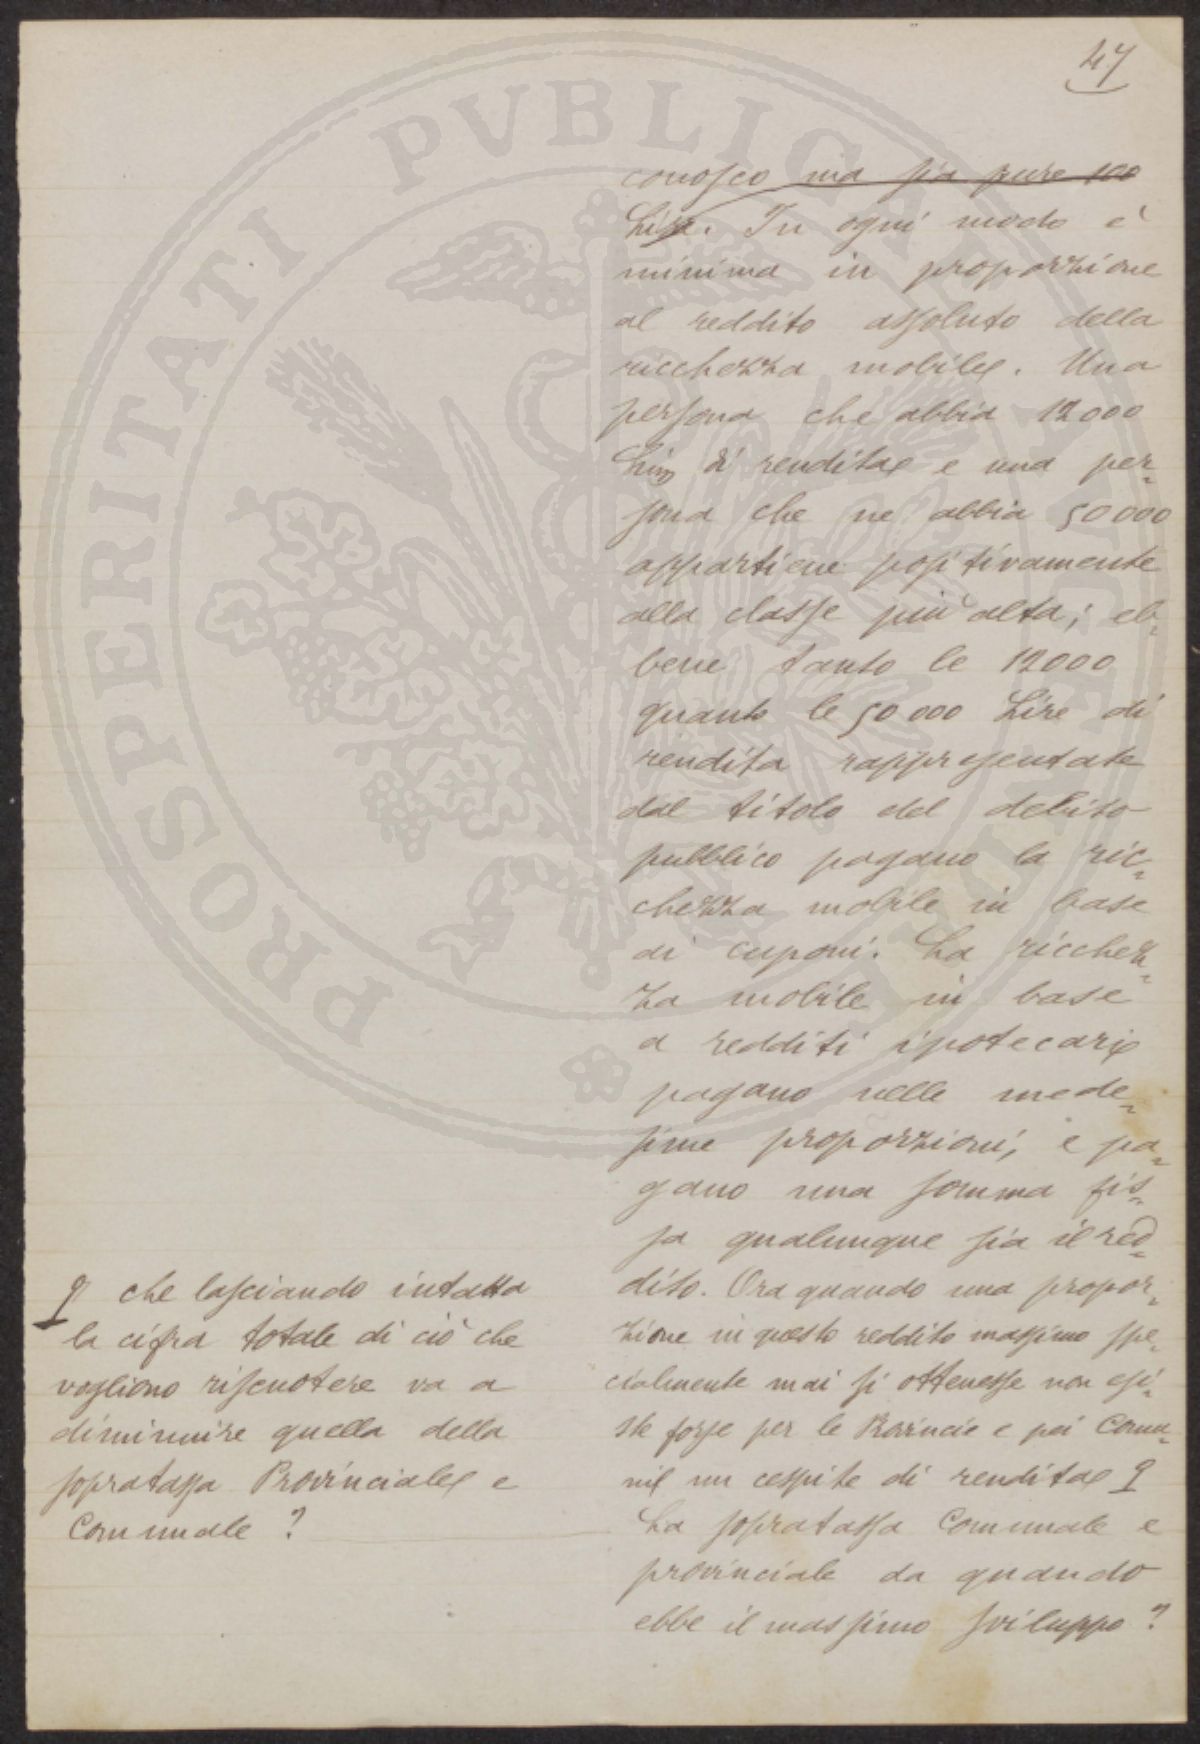 47
conosco ma sia pure 100
Lire. In ogni modo è
minima in proporzione
al reddito assoluto della
ricchezza mobile. Una
persona che abbia 12000
Lire di rendita e una per-
sona che ne abbia 50000
appartiene positivamente
alla classe più alta; eb-
bene tanto le 12000
quanto le 50000 Lire di
rendita rappresentate
dal titolo del debito
pubblico pagano la ric-
chezza mobile in base
ai cuponi. La ricchez-
za mobile in base
a redditi ipotecarii
pagano nelle mede-
sime proporzioni, e pa-
gano una somma fis-
sa qualunque sia il red-
dito. Ora quando una propor-
zione in questo reddito massimo spe-
cialmente mai si ottenesse non esi-
ste forse per le Provincie e pei Comu-
ni un cespite di rendita
La sopratassa Comunale e
provinciale da quando
ebbe il massimo sviluppo?
che lasciando intatta
la cifra totale di ciò che
vogliono riscuotere va a
diminuire quella della
sopratassa Provinciale e
Comunale?
PROSPERITATI PVBLICAE